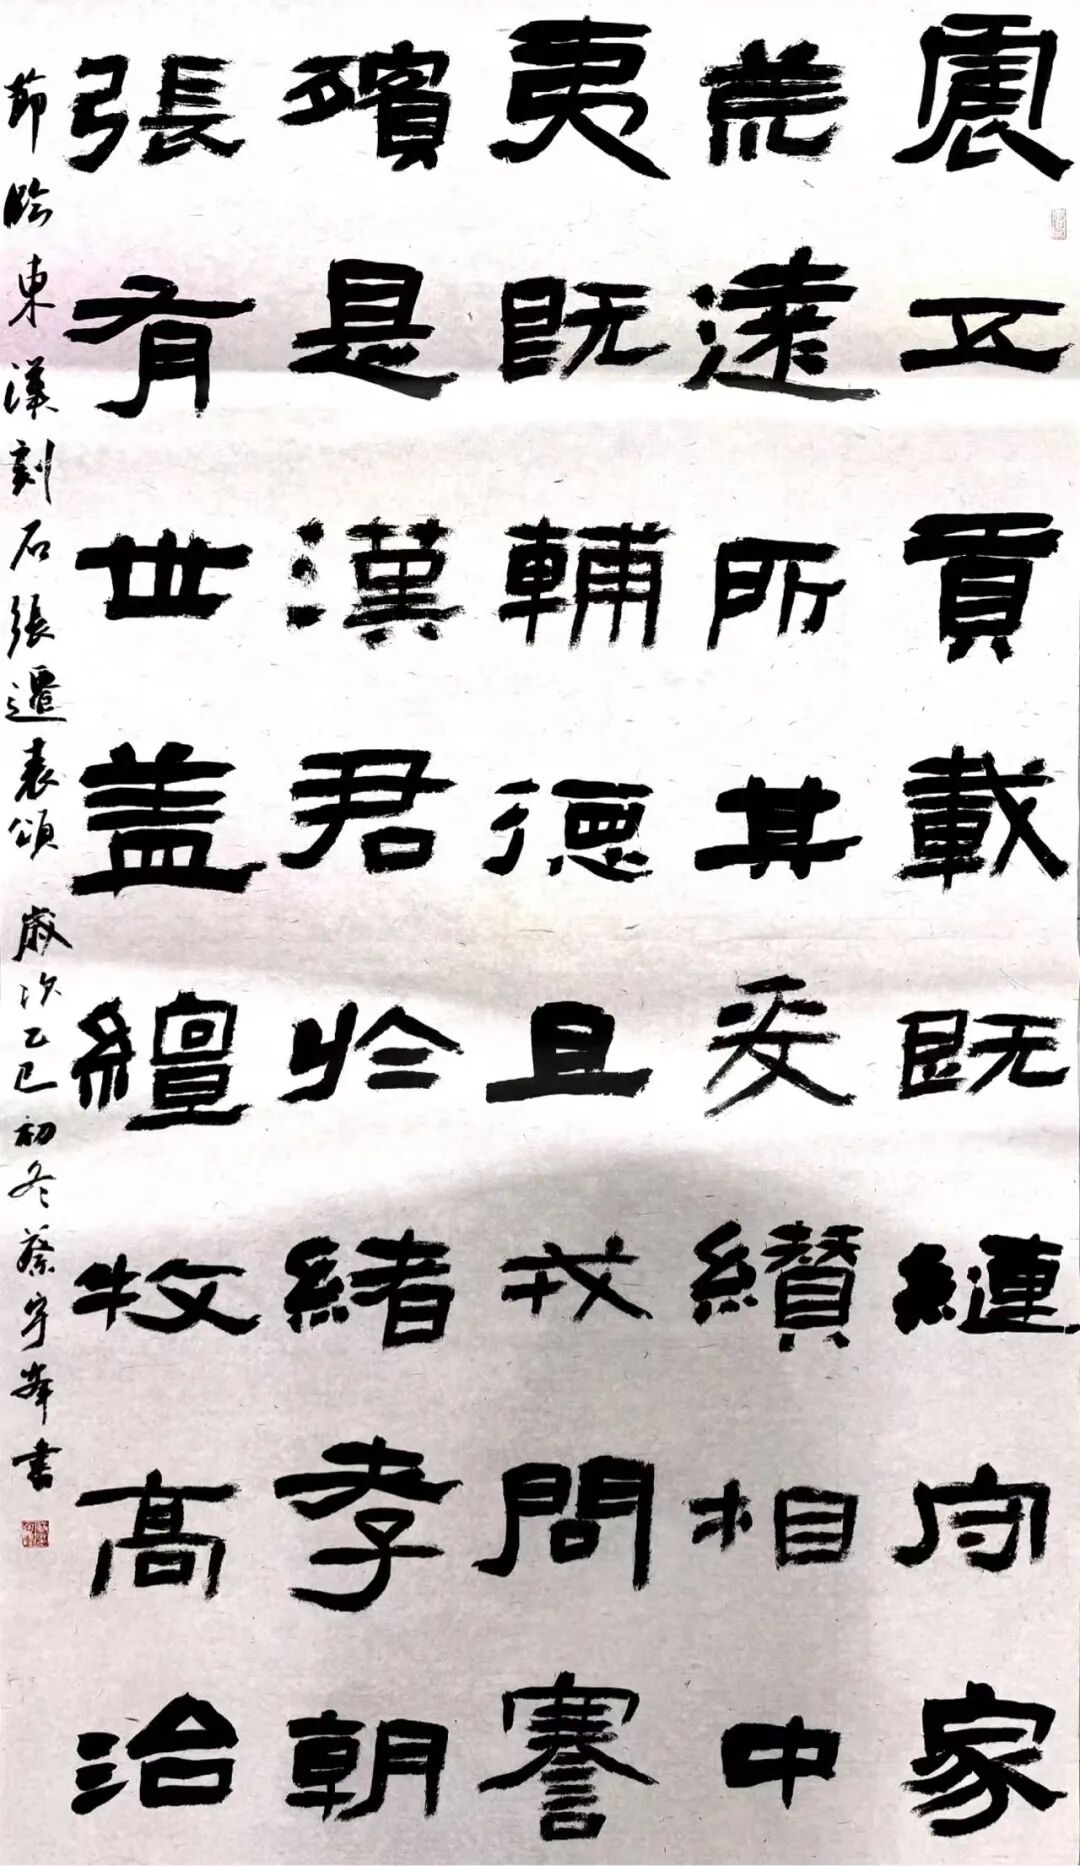 震五貢載既縺守家
荒遠所其爰纘相中
夷既輔德且戎問謇
殯是漢君於緒孝朝
張有世盖繵牧高治
節臨東漢刻石張遷表頌歲次乙巳初冬蔡宇峯書